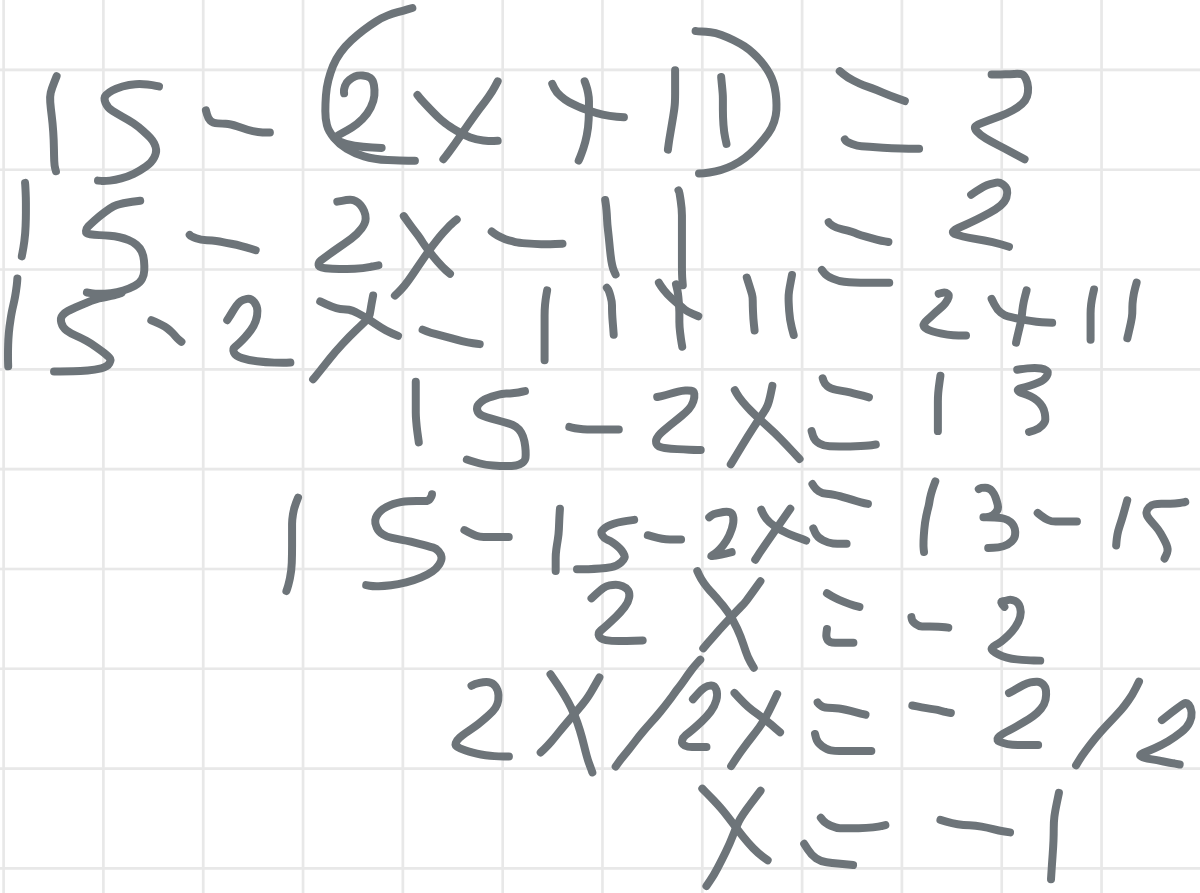 15 - (2x + 11) = 2
15 - 2x - 11 = 2
15 - 2x - 11 + 11 = 2 + 11
15 - 2x = 13
15 - 15 - 2x = 13 - 15
2x = -2
2x / 2x = -2 / 2
x = -1